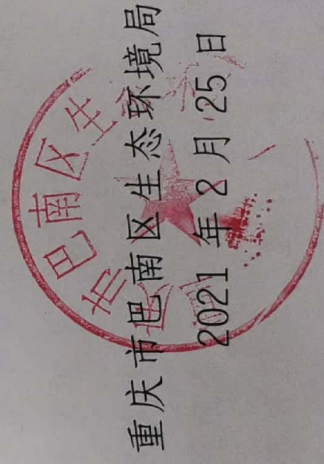 重庆市巴南区生态环境局
2021 年 2 月 25 日
市巴南区生